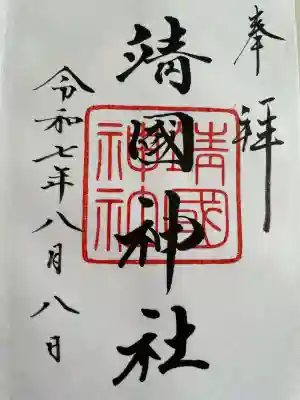 奉拝
靖國神社
靖國神社
令和七年八月八日